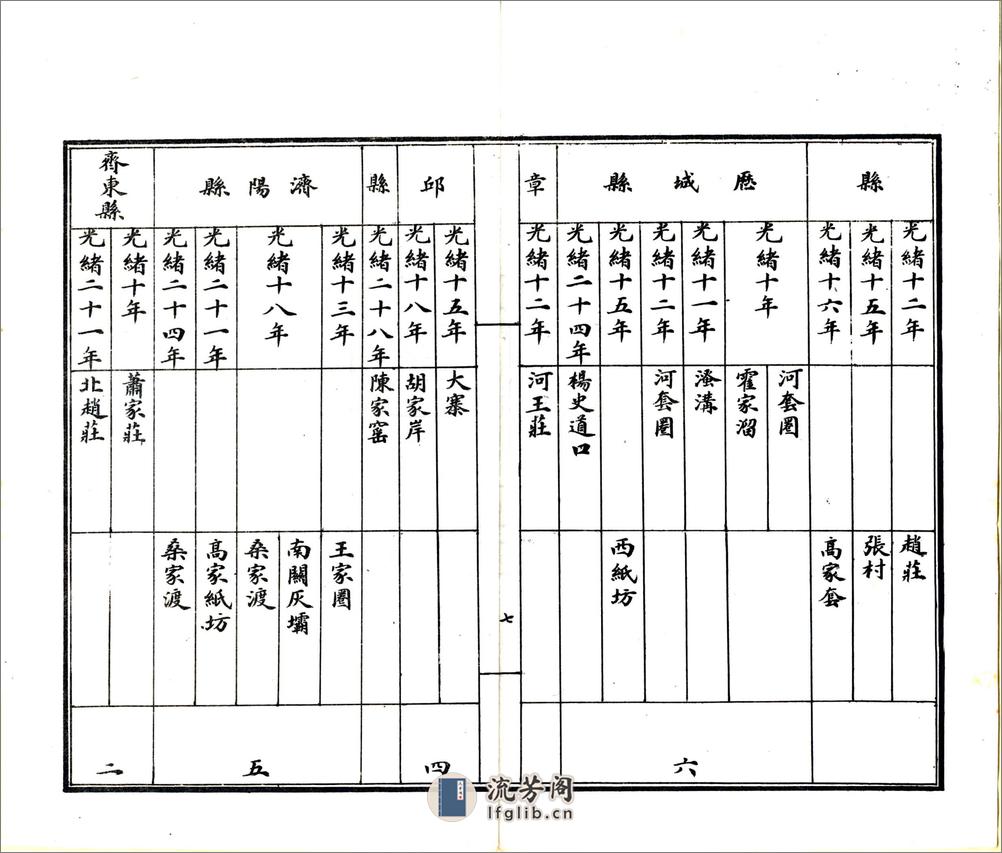 縣
光緒十二年
趙莊
光緒十五年
張村
光緒十六年
高家套
歷城縣
光緒十年
河套圈
霍家溜
光緒十一年
溞溝
光緒十二年
河套圈
光緒十五年
西紙坊
光緒二十四年
楊史道口
六
章
光緒十二年
河王莊
七
邱
光緒十五年
大寨
光緒十八年
胡家岸
縣
光緒二十八年
陳家窑
四
濟陽縣
光緒十三年
王家圈
光緒十八年
南關灰壩
桑家渡
光緒二十一年
高家紙坊
光緒二十四年
桑家渡
五
齊東縣
光緒十年
蕭家莊
光緒二十一年
北趙莊
二
流芳阁
lfglib.cn